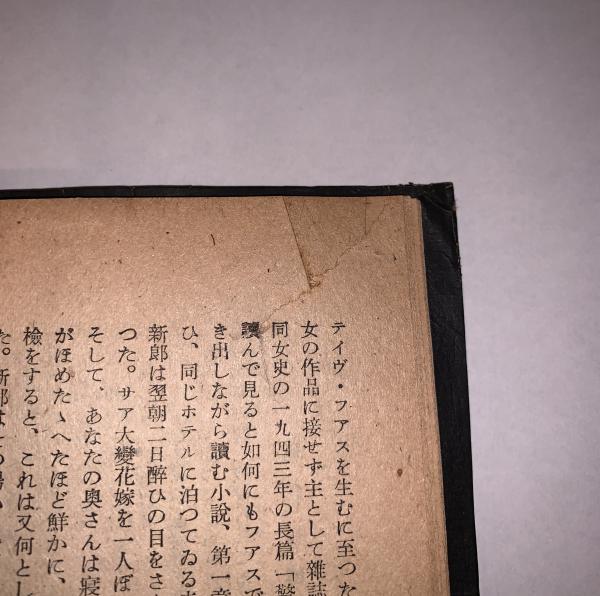 テイヴ・フアスを生むに至つた
女の作品に接せず主として雜誌
同女史の一九四三年の長篇「驚
讀んで見ると如何にもフアスで
き出しながら讀む小說、第一章
ひ、同じホテルに泊つてゐる
新郞は翌朝二日醉ひの目をさ
つた。サア大變花嫁を一人ぼ
そして、あなたの奧さんは寢
がほめたゝへたほど鮮かに、
檢をすると、これは又何とし
た。新郞は